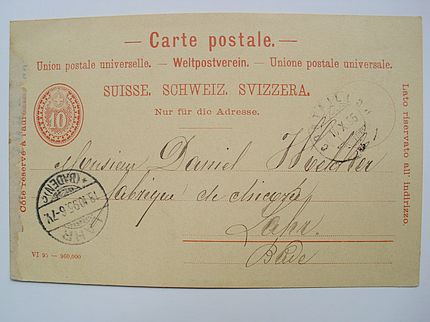 — Carte postale. —
Union postale universelle. — Weltpostverein. — Unione postale universale.
SUISSE. SCHWEIZ. SVIZZERA.
Nur für die Adresse.
10
Côté réservé à l'adresse.
Lato riservato all' indirizzo.
Monsieur Daniel
fabrique de chicorée
Lahr
Bade
LAHR
* (BADEN) *
VI 95 — 960,000